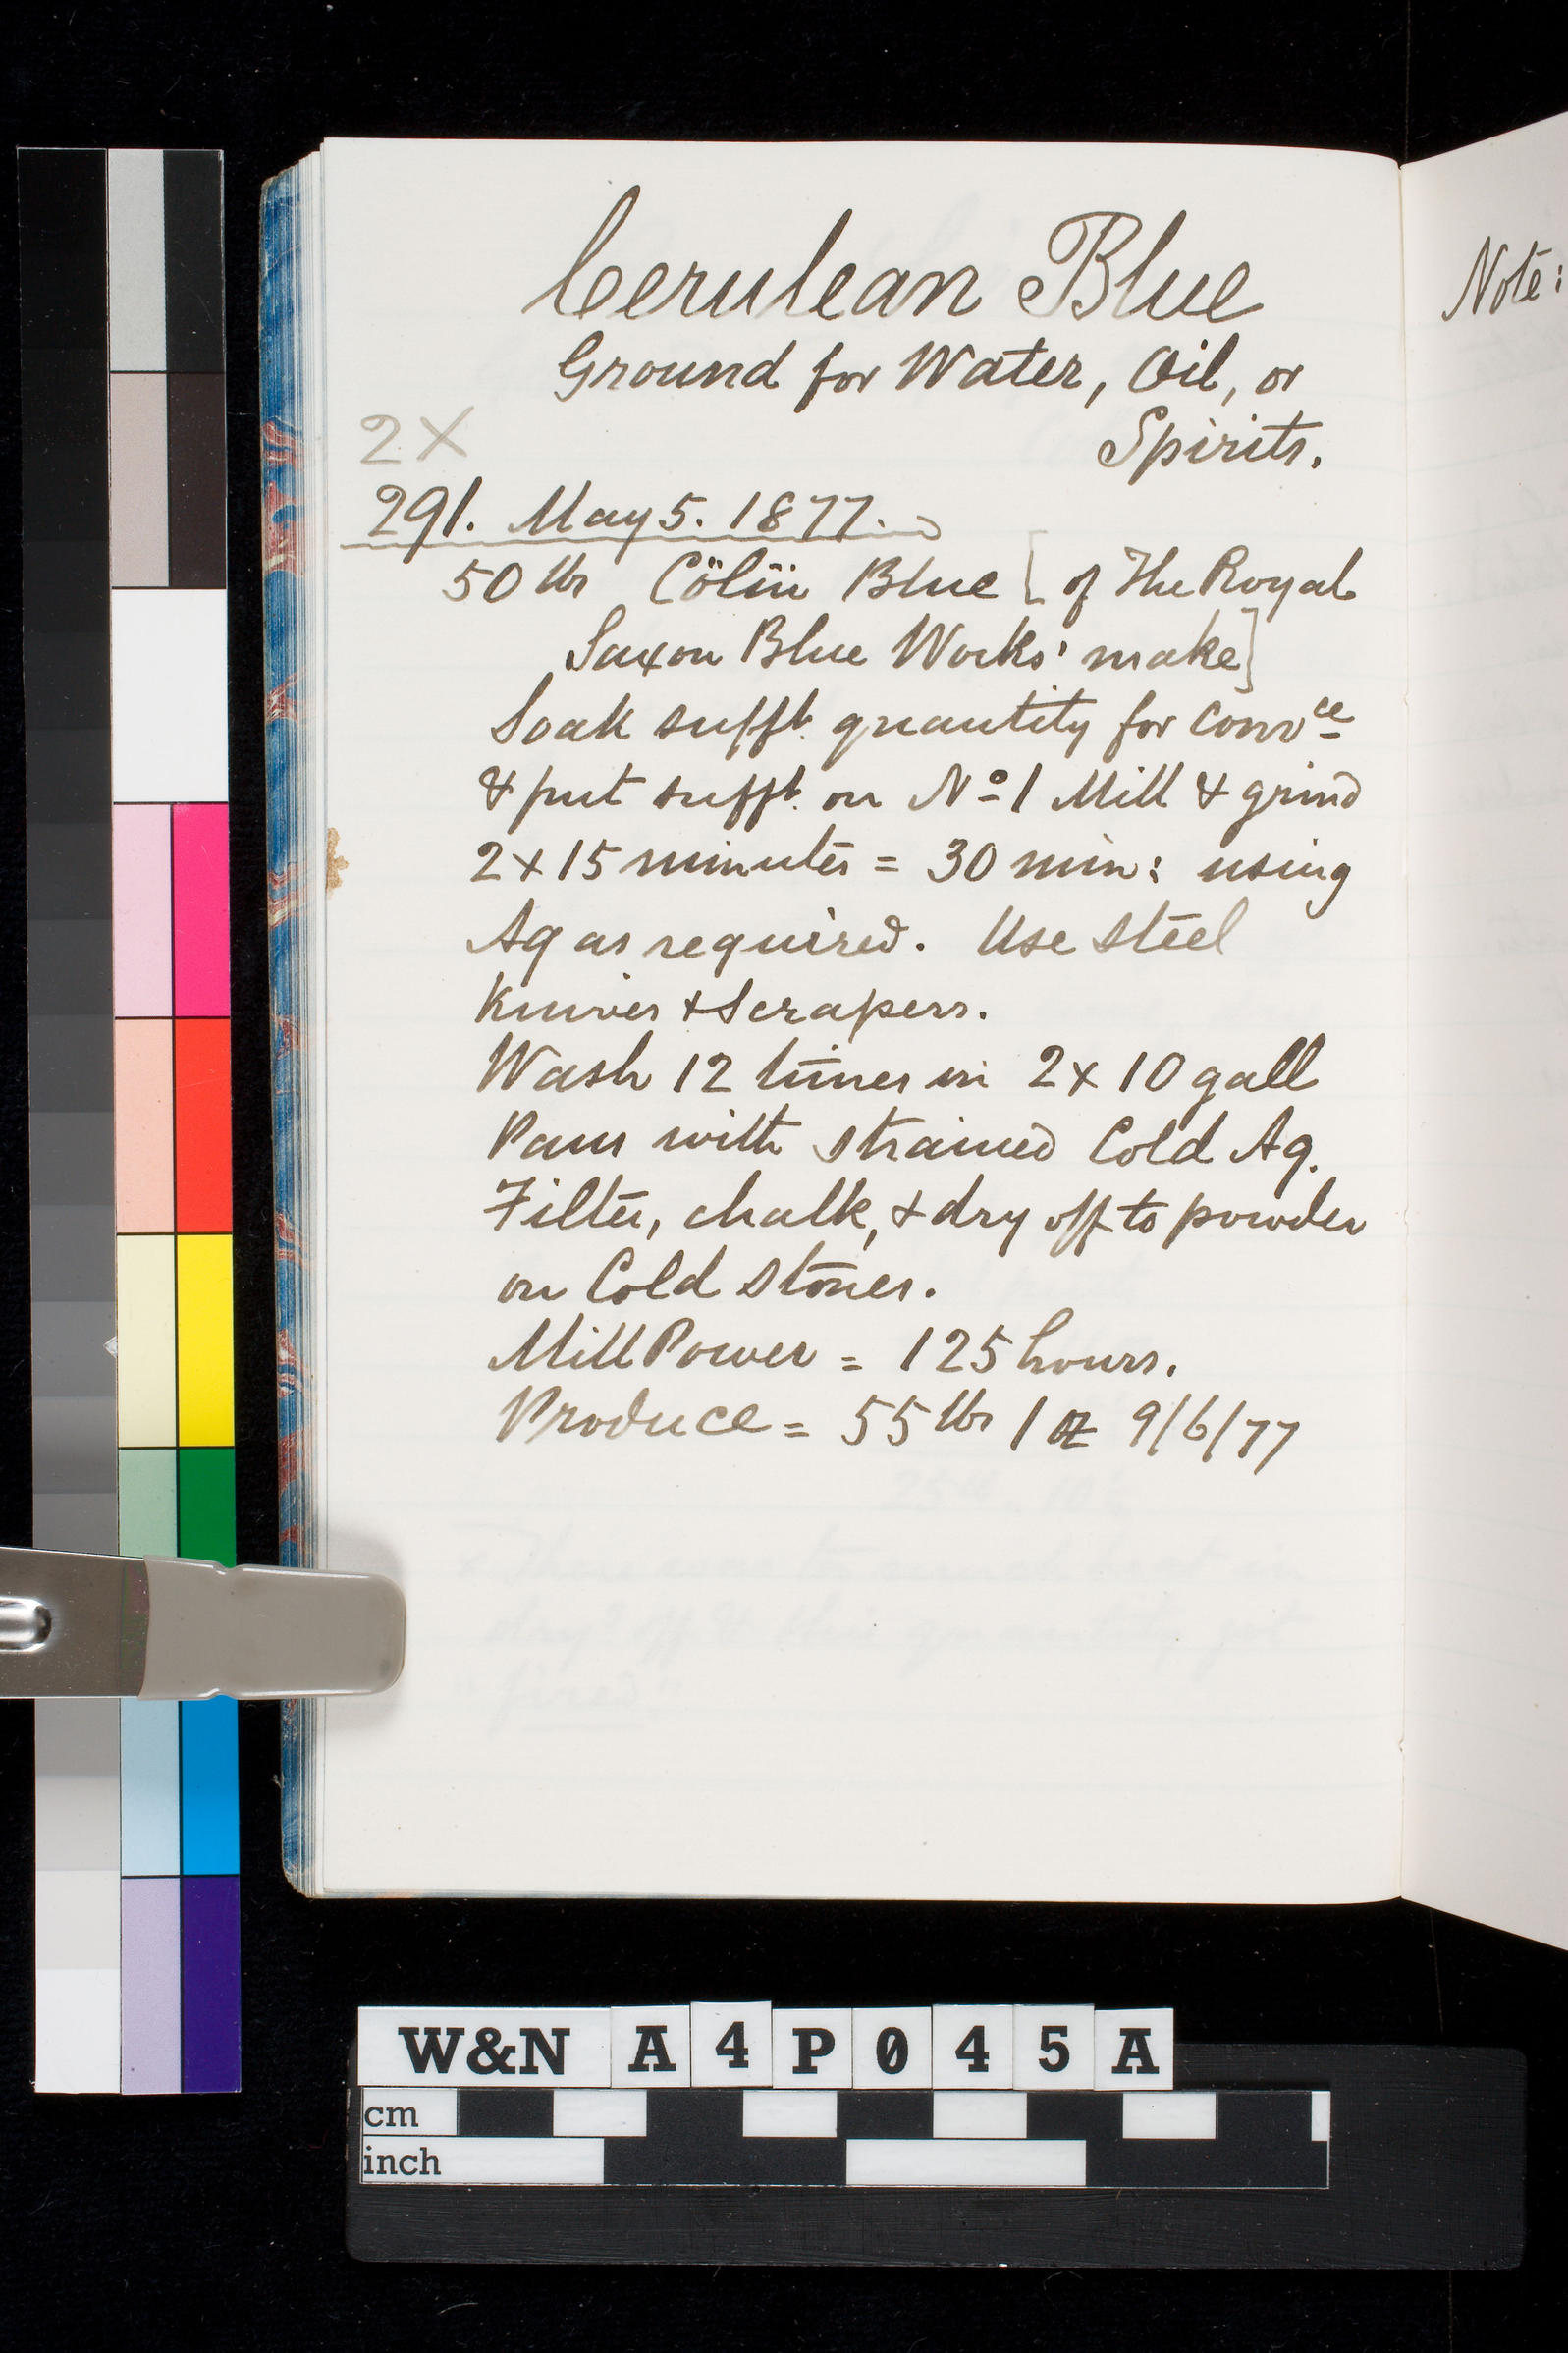 Cerulean Blue
Ground for Water, Oil, or
Spirits.
2X
291. May 5. 1877.
50 lbs Cölïn Blue [of The Royal
Saxon Blue Works' make]
Soak sufft. quantity for convce
& put sufft. on No 1 Mill & grind
2 x 15 minutes = 30 min: using
Aq as required. Use steel
Knives & Scrapers.
Wash 12 times in 2 x 10 gall
Pans with strained Cold Aq.
Filter, chalk, & dry off to powder
on Cold stones.
Mill Power = 125 hours.
Produce = 55 lbs 1 oz 9/6/77
Note:
W&N A4P045A
cm
inch